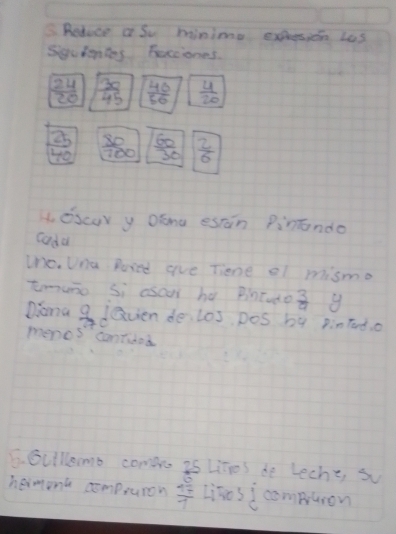 3. Reduce a su minimo expresión Los
siguientes Fracciones.
24/20 30/45 40/56 4/20
25/40 80/100 60/30 2/6
4. óscar y Diana están Pintando
cada
uno. Una Pared que Tiene el mismo
Tamaño Si oscar ha Pintado y
Diana ¿Quien de Los Dos ha Pintado
menos cantidad
5. Guillermo compro Litros de Leche, su
hermana compraron Litros ¿ compraron